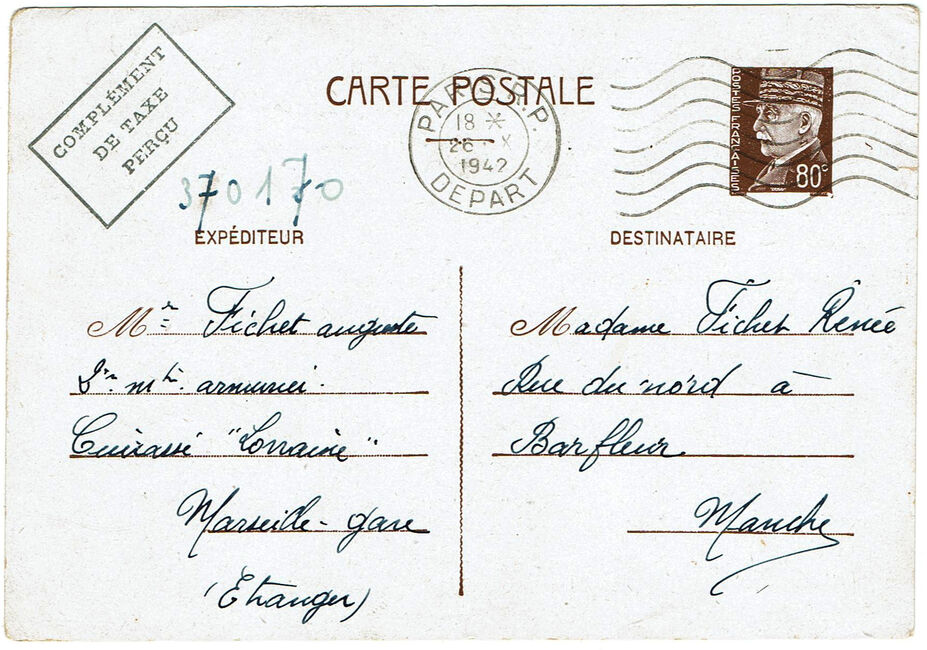 COMPLÉMENT
DE TAXE
PERÇU
CARTE POSTALE
PARIS R.P.
18 *
26 X
1942
DEPART
POSTES FRANÇAISES
80c
370170
EXPÉDITEUR
Mr Fichet auguste
armurier
Cuirassé "Lorraine"
Marseille-gare
(Etranger)
DESTINATAIRE
Madame Fichet Renée
Rue du nord à
Barfleur
Manche